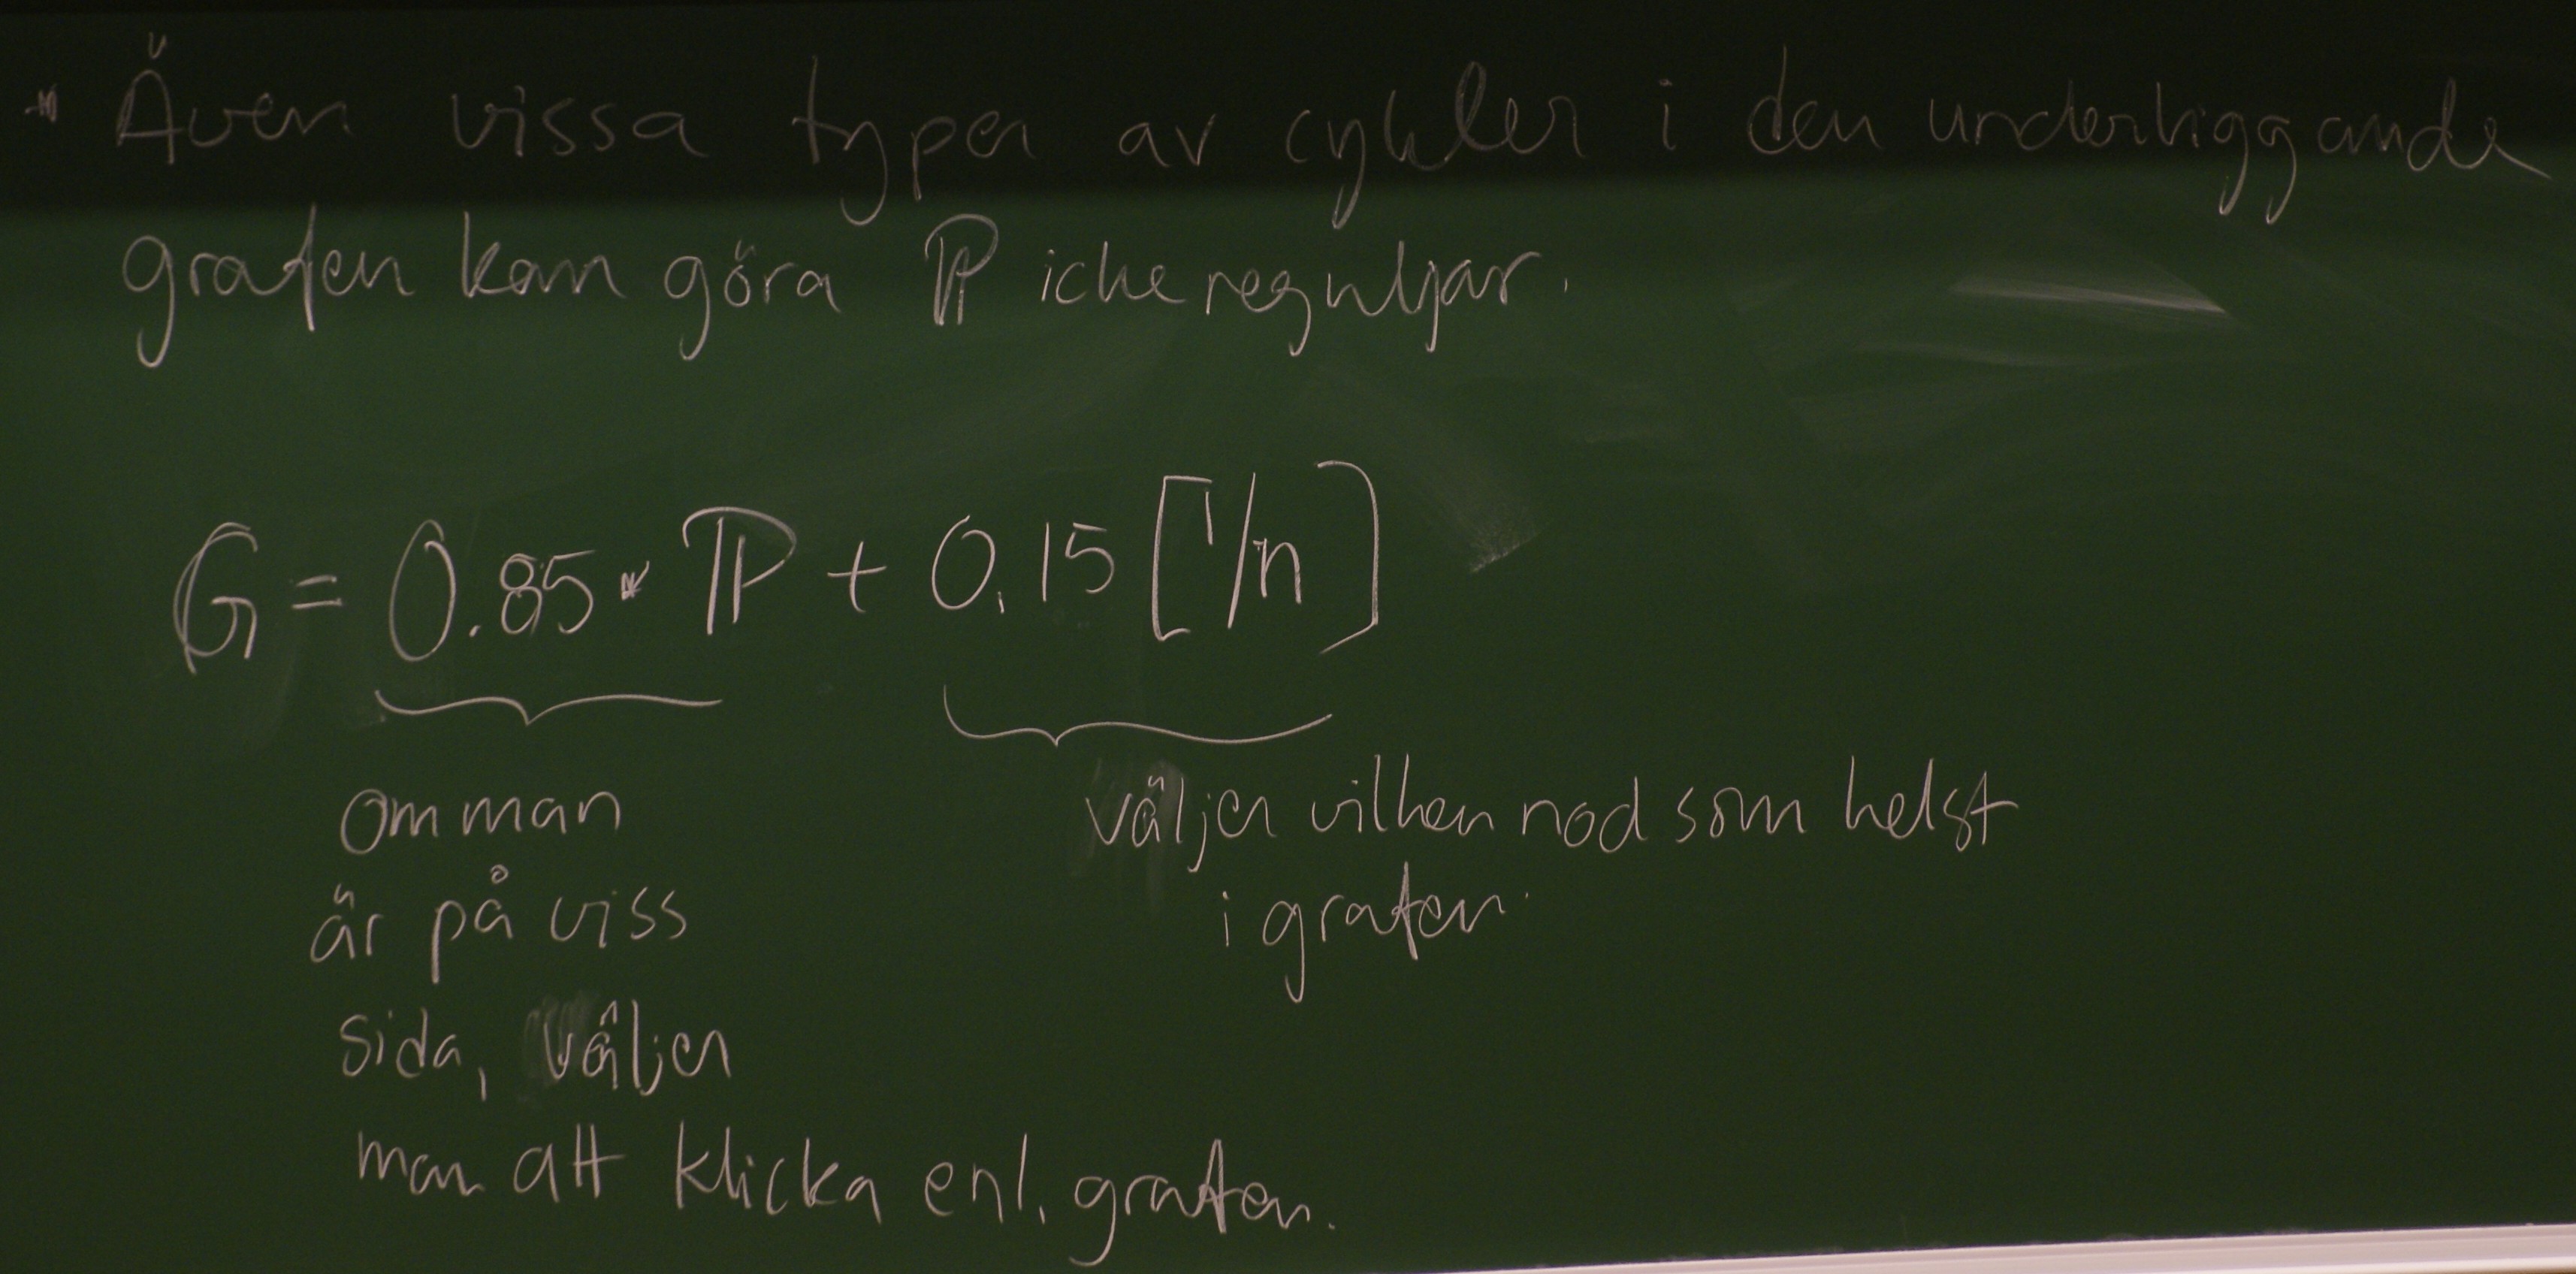 * Även vissa typer av cykler i den underliggande
grafen kan göra ℙ icke reguljär.
G = 0.85 · ℙ + 0.15 [1/n]
om man
är på viss
sida, väljer
man att klicka enl. grafen.
väljer vilken nod som helst
i grafen.